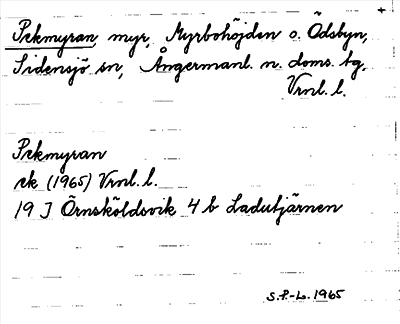 Pekmyran, myr, Myrbohöjden o. Ödsbyn,
Sidensjö sn, Ångermanl. n. doms. tg.
Vrnl. l.
Pekmyran
ek (1965) Vrnl. l.
19 J Örnsköldsvik 4 b Ladutjärnen
S.P.-L. 1965